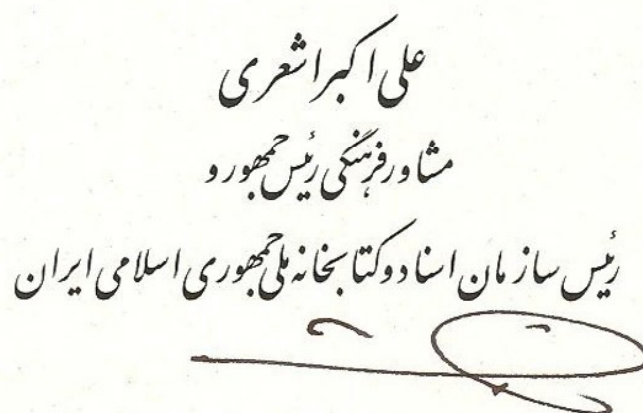 علی اکبر اشعری
مشاور فرهنگی رئیس جمهور و
رئیس سازمان اسناد و کتابخانه ملی جمهوری اسلامی ایران